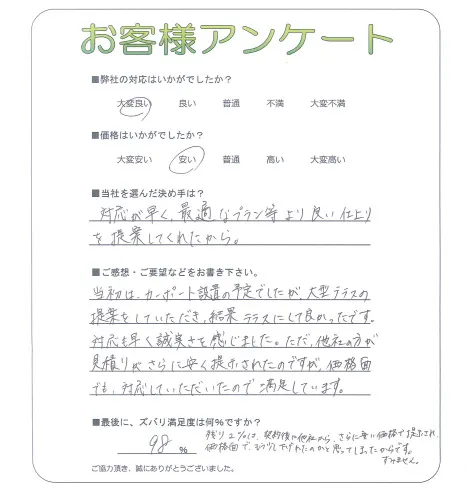 お客様アンケート
■弊社の対応はいかがでしたか？
大変良い 良い 普通 不満 大変不満
■価格はいかがでしたか？
大変安い 安い 普通 高い 大変高い
■当社を選んだ決め手は？
対応が早く、最適なプラン等より良い仕上り
を提案してくれたから。
■ご感想・ご要望などをお書き下さい。
当初は、カーポート設置の予定でしたが、大型テラスの
提案をしていただき、結果テラスにして良かったです。
対応も早く誠実さを感じました。ただ、他社の方が
見積りがさらに安く提示されたのですが、価格面
でも、対応していただいたので満足しています。
■最後に、ズバリ満足度は何％ですか？
98 %
残り2%は、契約後に他社から、さらに安い価格で提示され
価格面で、もう少し下げれたのかと思ってしまったからです。
すみません。
ご協力頂き、誠にありがとうございました。